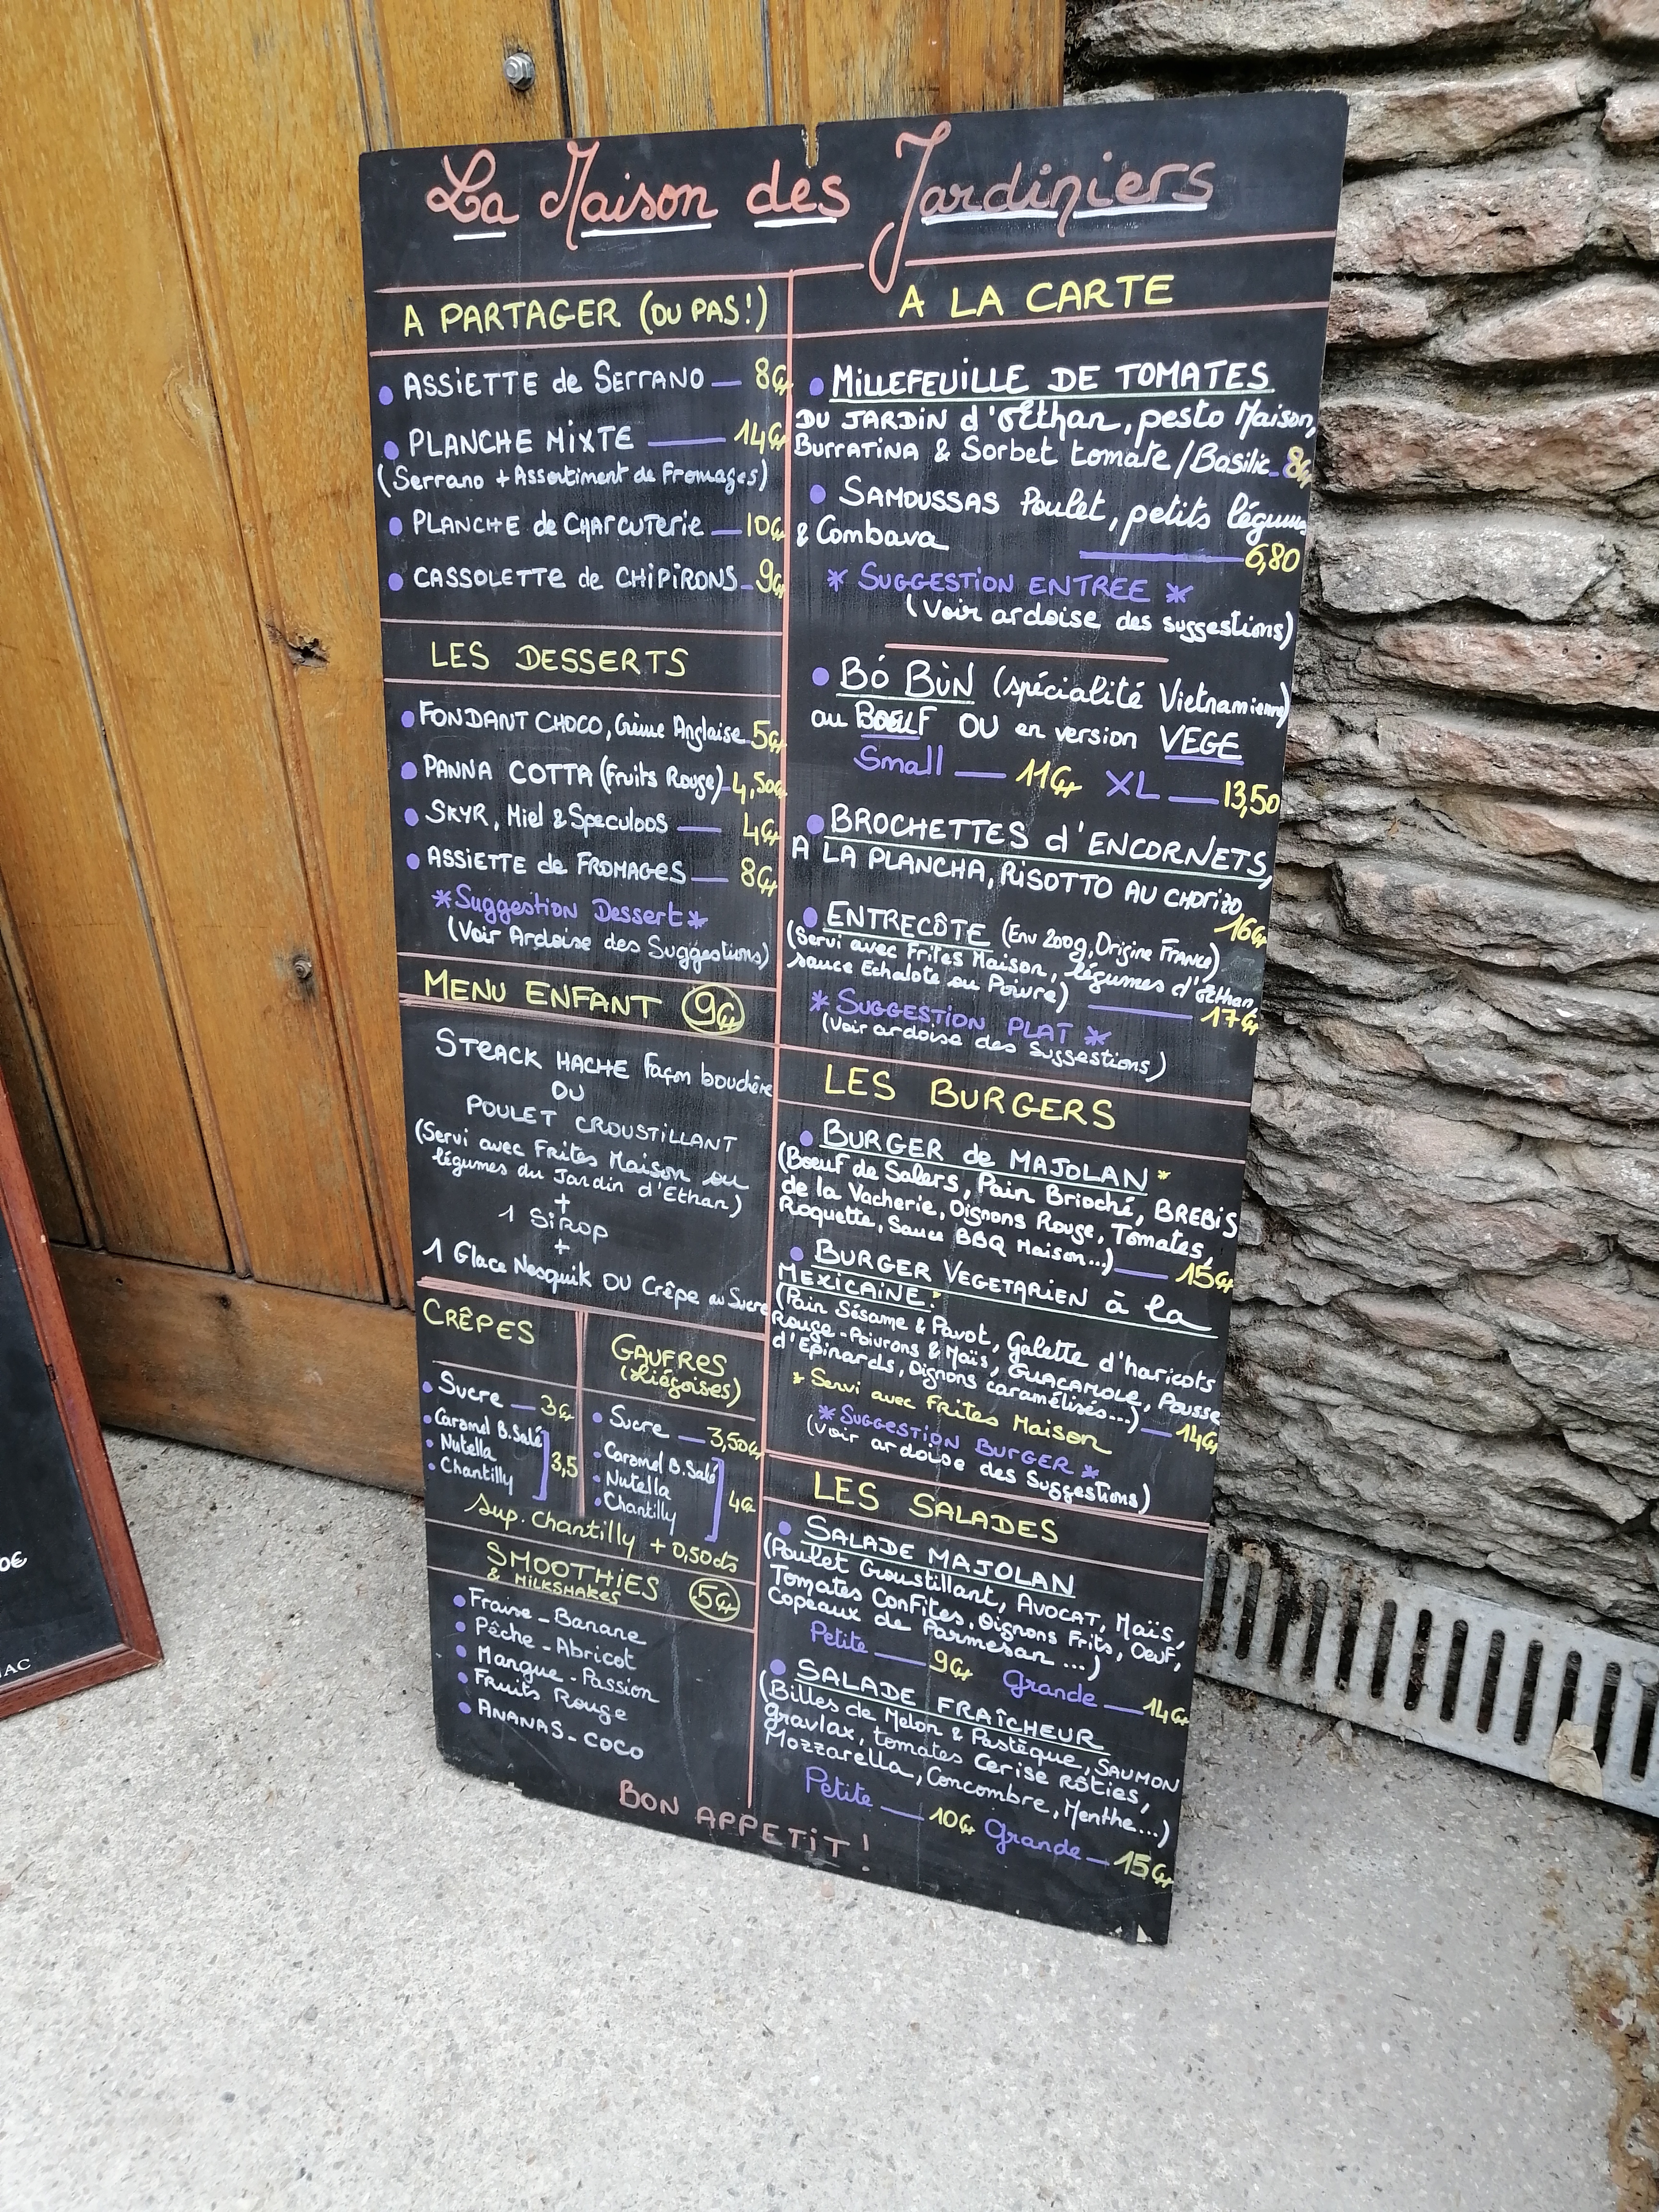 La Maison des Jardiniers
A PARTAGER (OU PAS!)
• ASSIETTE de SERRANO — 8€
• PLANCHE MIXTE — 14€
(Serrano + Assortiment de Fromages)
• PLANCHE de CHARCUTERIE — 10€
• CASSOLETTE de CHIPIRONS - 9€
LES DESSERTS
• FONDANT CHOCO, Crème Anglaise - 5€
• PANNA COTTA (Fruits Rouge) - 4,50€
• SKYR, Miel & Speculoos — 4€
• ASSIETTE de FROMAGES — 8€
* Suggestion Dessert *
(Voir Ardoise des Suggestions)
MENU ENFANT 9€
STEACK HACHE Façon bouchère
OU
POULET CROUSTILLANT
(Servi avec Frites Maison ou
légumes du Jardin d'Ethan)
+
1 SIROP
+
1 Glace Nesquik OU Crêpe au Sucre
CRÊPES
• Sucre — 3€
• Caramel B.Salé
• Nutella
• Chantilly
3,5
GAUFRES
(Liégoises)
• Sucre — 3,50€
• Caramel B.Salé
• Nutella
• Chantilly
4€
sup. Chantilly + 0,50cts
SMOOTHIES
& MILKSHAKES
5€
• Fraise - Banane
• Pêche - Abricot
• Mangue - Passion
• Fruits Rouge
• ANANAS - COCO
A LA CARTE
• MILLEFEUILLE DE TOMATES
DU JARDIN d'Ethan, pesto Maison,
BURRATINA & Sorbet tomate/Basilic - 8€
• SAMOUSSAS Poulet, petits légumes
& Combava — 6,80
* SUGGESTION ENTREE *
(Voir ardoise des suggestions)
• BÓ BÙN (spécialité Vietnamienne)
au BOEUF OU en version VEGE
Small — 11€ XL — 13,50
• BROCHETTES d'ENCORNETS,
A LA PLANCHA, RISOTTO AU CHORIZO
16€
• ENTRECÔTE (Env 200g, Origine France)
(Servi avec Frites Maison, légumes d'Ethan,
sauce Echalote ou Poivre) — 17€
* SUGGESTION PLAT *
(Voir ardoise des Suggestions)
LES BURGERS
• BURGER de MAJOLAN *
(Boeuf de Salers, Pain Brioché, BREBIS
de la Vacherie, Oignons Rouge, Tomates,
Roquette, Sauce BBQ Maison...) — 15€
• BURGER VEGETARIEN à la
MEXICAINE *
(Pain Sésame & Pavot, Galette d'haricots
Rouge - Poivrons & Maïs, GUACAMOLE, Pousse
d'Epinards, Oignons caramélisés...) — 14€
* Servi avec Frites Maison
* SUGGESTION BURGER *
(Voir ardoise des Suggestions)
LES SALADES
• SALADE MAJOLAN
(Poulet Croustillant, AVOCAT, Maïs,
Tomates Confites, Oignons Frits, Oeuf,
Copeaux de Parmesan ...)
Petite — 9€ Grande — 14€
• SALADE FRAÎCHEUR
(Billes de Melon & Pastèque, SAUMON
gravlax, tomates Cerise Rôties,
Mozzarella, Concombre, Menthe...)
Petite — 10€ Grande — 15€
BON APPETIT !
0€